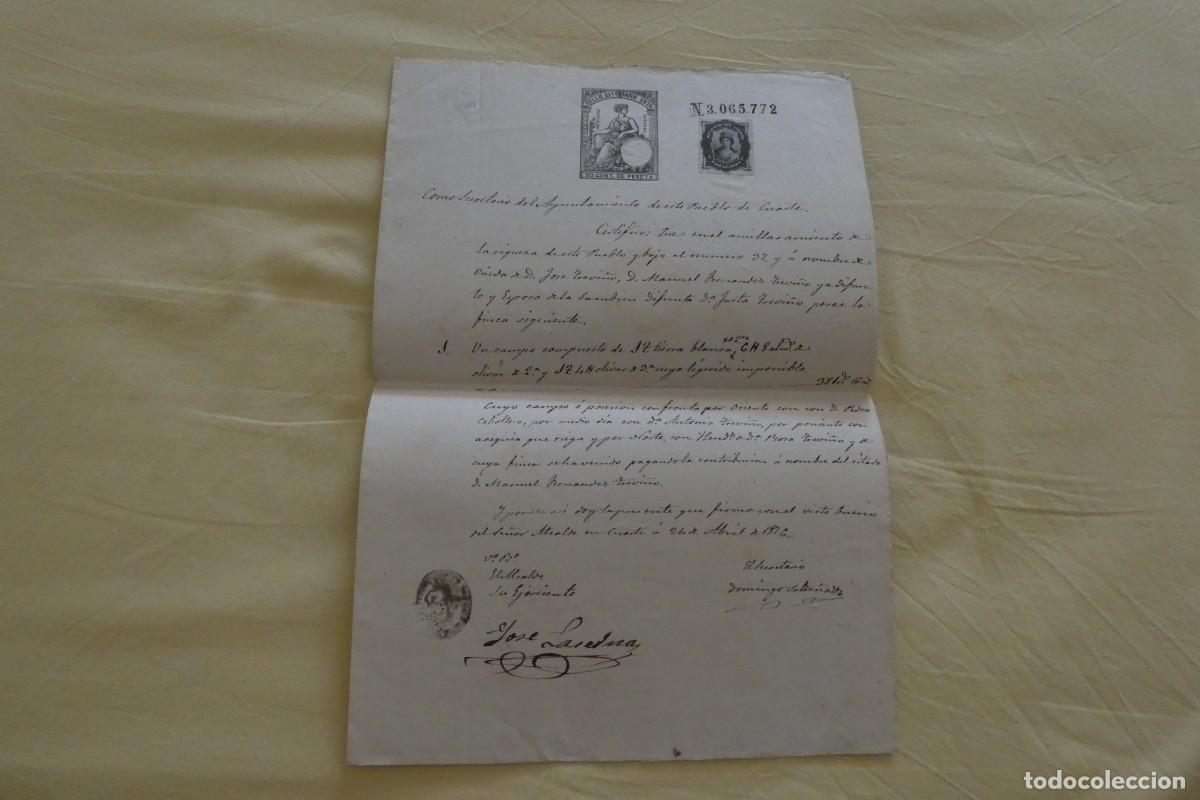 SELLO 11º AÑO 1876
N.3.065.772
50 CENT. DE PESETA
Como Secretario del Ayuntamiento de este Pueblo de Cuarte.
Certifico: Que en el amillaramiento de
la riqueza de este Pueblo y bajo el numero 32 y á nombre de
Viuda de D. Jose Treviño, D. Manuel Fernandez Treviño ya difun-
to y Esposo de la tambien difunta Dª Justa Treviño posee la
finca siguiente.
1.. Un campo compuesto de 1Z tierra blanca, 6 H 8 alms de
olivar de 2ª y 1Z 4H olivar de 3ª cuyo líquido imponible
Cuyo campo ó posesion confronta por Oriente con con D. Pedro
Ceballero, por medio dia con Dª Antonia Treviño, por poniente con
acequia que riega y por Norte, con de Dª Treviño y de
cuya finca se ha venido pagando la contribucion á nombre del citado
D. Manuel Fernandez Treviño.
Y por ser asi doy la presente que firmo con el visto bueno
del Señor Alcalde en Cuarte á 24 de Abril de 1876.
Vº Bº
El Alcalde
El Secretario
Domingo
Jose
todocoleccion